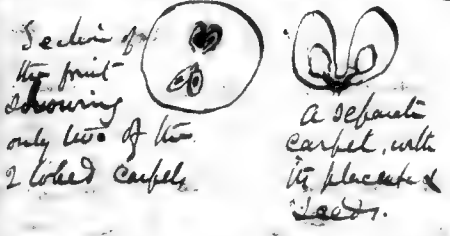 Section of
the fruit
showing
only two of the
2 lobed carpels
A separate
carpel, with
its placenta &
seeds.